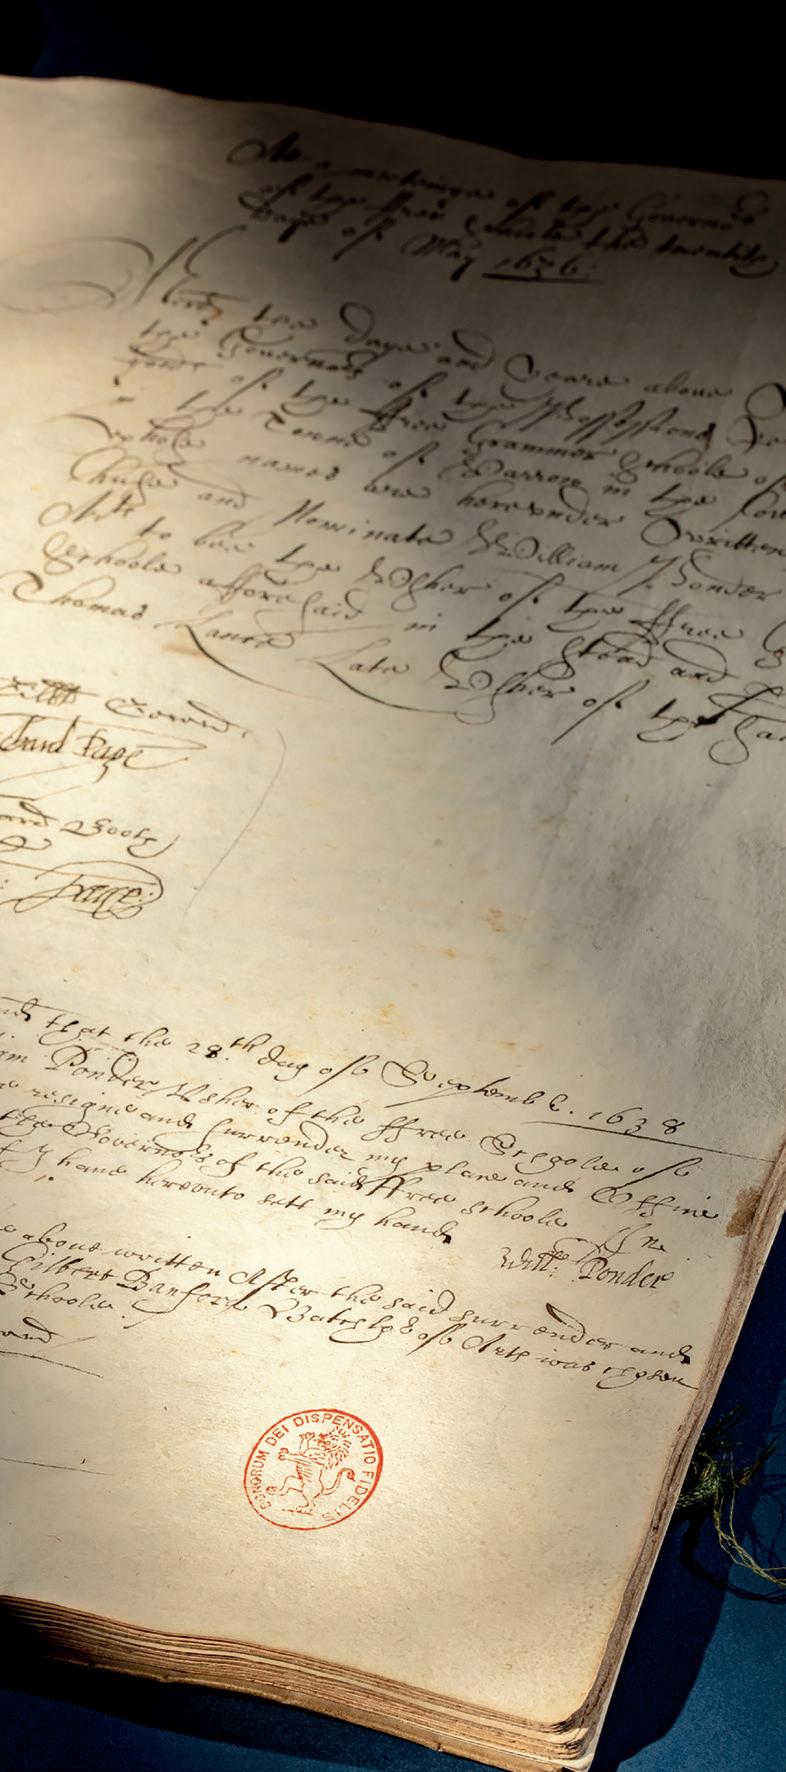 At a meetinge of the Governors
of the free Schoole the twentith
Daye of May 1636:
the Daye and Yeare above
the Governors of the Possessions
of the ffree Grammer Schoole of
in the Towne of Harrow in the
whose names are hereunder written
Chuse and Nominate William Ponder
Arts to bee the Vsher of the ffree
Schoole afforesaid in the stead and
Thomas Lance Late Vsher of the
David Page
Page:
that the 28th day of September. 1638
Ponder Vsher of the ffree Schoole of
resigne and surrender my place and Office
the Governors of the said ffree Schoole In
have hereunto sett my hand
Will: Ponder
above written After the said surrender and
Gilbert Banford Batchler of Arts was chosen
Schoole.
DONORUM DEI DISPENSATIO FIDELIS